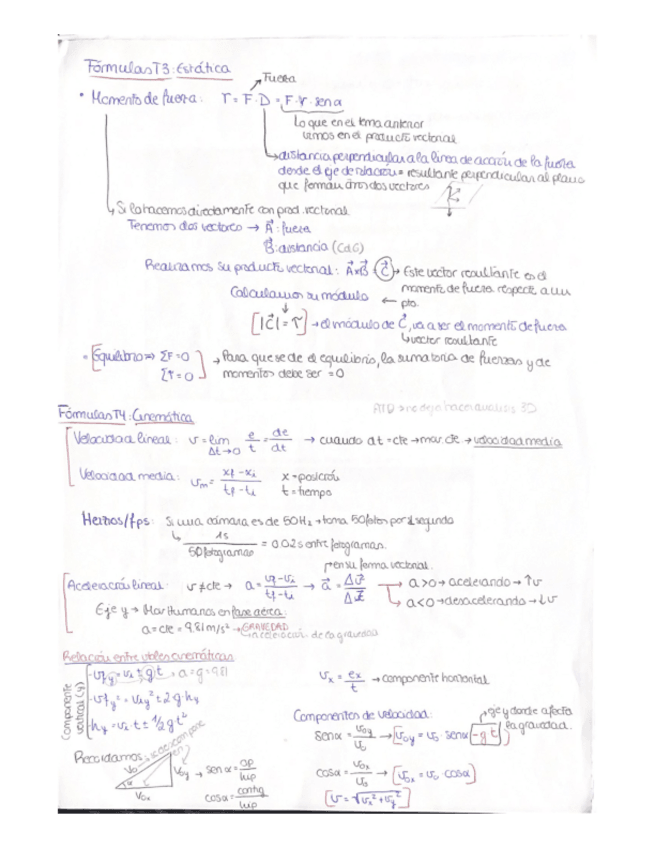 Fórmulas T3: Estática
Fuerza
• Momento de fuerza: τ = F · D = F · r · sen α
Lo que en el tema anterior
vimos en el producto vectorial
distancia perpendicular a la línea de acción de la fuerza
desde el eje de rotación = resultante perpendicular al plano
que forman otros dos vectores
Si lo hacemos directamente con prod. vectorial
Tenemos dos vectores → A⃗: fuerza
B⃗: distancia (CdG)
Realizamos su producto vectorial: A⃗xB⃗ = C⃗ → Este vector resultante es el
momento de fuerza respecto a un
pto.
Calculamos su módulo ←
[|C⃗| = τ] → el módulo de C⃗, va a ser el momento de fuerza
vector resultante
Equilibrio ⇒ ΣF=0 → Para que se dé el equilibrio, la sumatoria de fuerzas y de
Στ=0 momentos debe ser =0
Fórmulas T4: Cinemática
3D
Velocidad lineal: v = lim Δt→0 e/t = de/dt → cuando dt = cte → mov. cte → velocidad media
Velocidad media: vm = xf - xi / tf - ti x = posición
t = tiempo
Hernios/fps: Si una cámara es de 50Hz → toma 50 fotos por 1 segundo
1s / 50 fotogramas = 0.02s entre fotogramas.
en su forma vectorial.
Aceleración lineal: v ≠ cte → a = vf - vi / tf - ti → a⃗ = Δv⃗ / Δt⃗ → a>0 → acelerando → ↑v
a<0 → desacelerando → ↓v
Eje y → Mov Humanos en fase aérea:
a = cte = 9.81 m/s² → GRAVEDAD
aceleración de la gravedad
Relación entre vbles cinemáticas
Componente vertical (y)
vfy = vi ± g t → a = g = 9.81
vfy² = viy² ± 2 g · hy
hy = vi t ± ½ g t²
vx = ex / t → componente horizontal
Componentes de velocidad:
eje y donde afecta
la gravedad.
sen α = voy / vo → [voy = vo · sen α (-g t)]
Recordamos:
vo
voy
α
vox
sen α = op / hip
cos α = contig / hip
cos α = vox / vo → [vox = vo · cos α]
[v = √vx² + vy²]